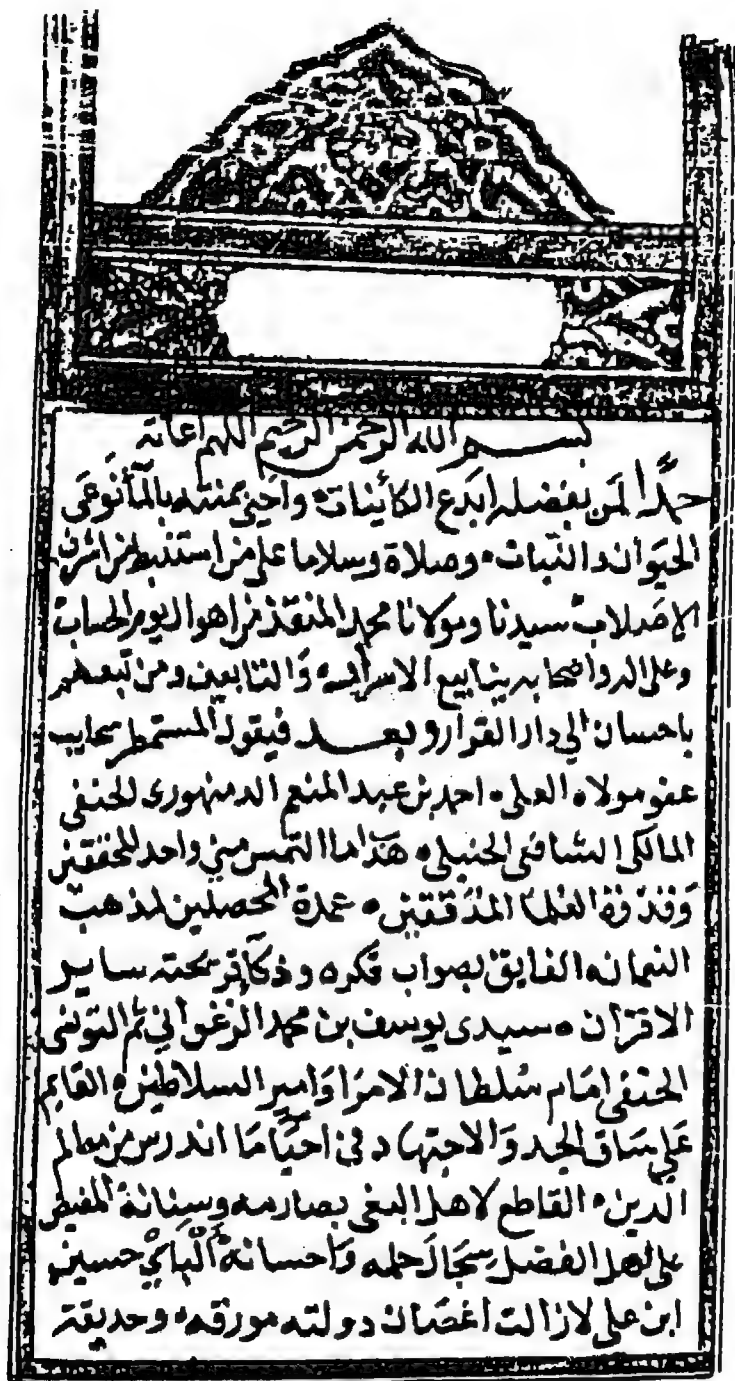 بسم الله الرحمن الرحيم اللهم اعانة
حمدا لمن بفضله ابدع الكائنات واحيى بمنته بالماء نوعى
الحيوان والنبات وصلاة وسلاما على من استنبط من اشرف
الاصلاب سيدنا ومولانا محمد المنقذ من اهوال يوم الحساب
وعلى اله واصحابه ينابيع الاسرار والتابعين ومن تبعهم
باحسان الى دار القرار وبعد فيقول المستمطر سحايب
عفو مولاه العلى احمد بن عبد المنعم الدمنهورى الحنفى
المالكى الشافعى الحنبلى هذا ما التمس منى واحد المحققين
وقدوة العلما المدققين عمدة المحصلين لمذهب
النعمان الفايق بصواب فكره وذكا قريحته ساير
الاقران سيدى يوسف بن محمد الزغوانى ثم التونسى
الحنفى امام سلطان الامرا وامير السلاطين القايم
على ساق الجد والاجتهاد فى احيا ما اندرس من معالم
الدين القاطع لاهل البغى بصارمه وسنانه المفيض
على اهل الفضل سجال حلمه واحسانه الباي حسين
ابن على لازالت اغصان دولته مورقه وحديقة